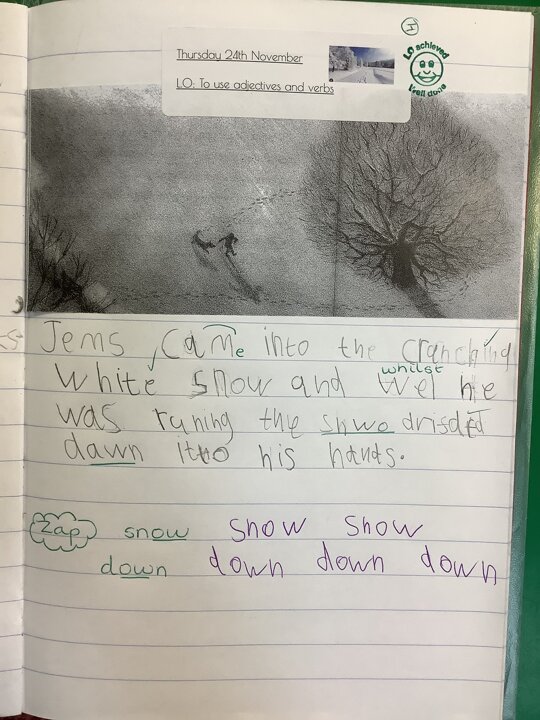 Thursday 24th November
LO: To use adjectives and verbs
LO achieved
Well done
Jems came into the cranching
white snow and whilst he
was runing the snwo drisded
dawn itto his hands.
Zap snow snow snow
down down down down